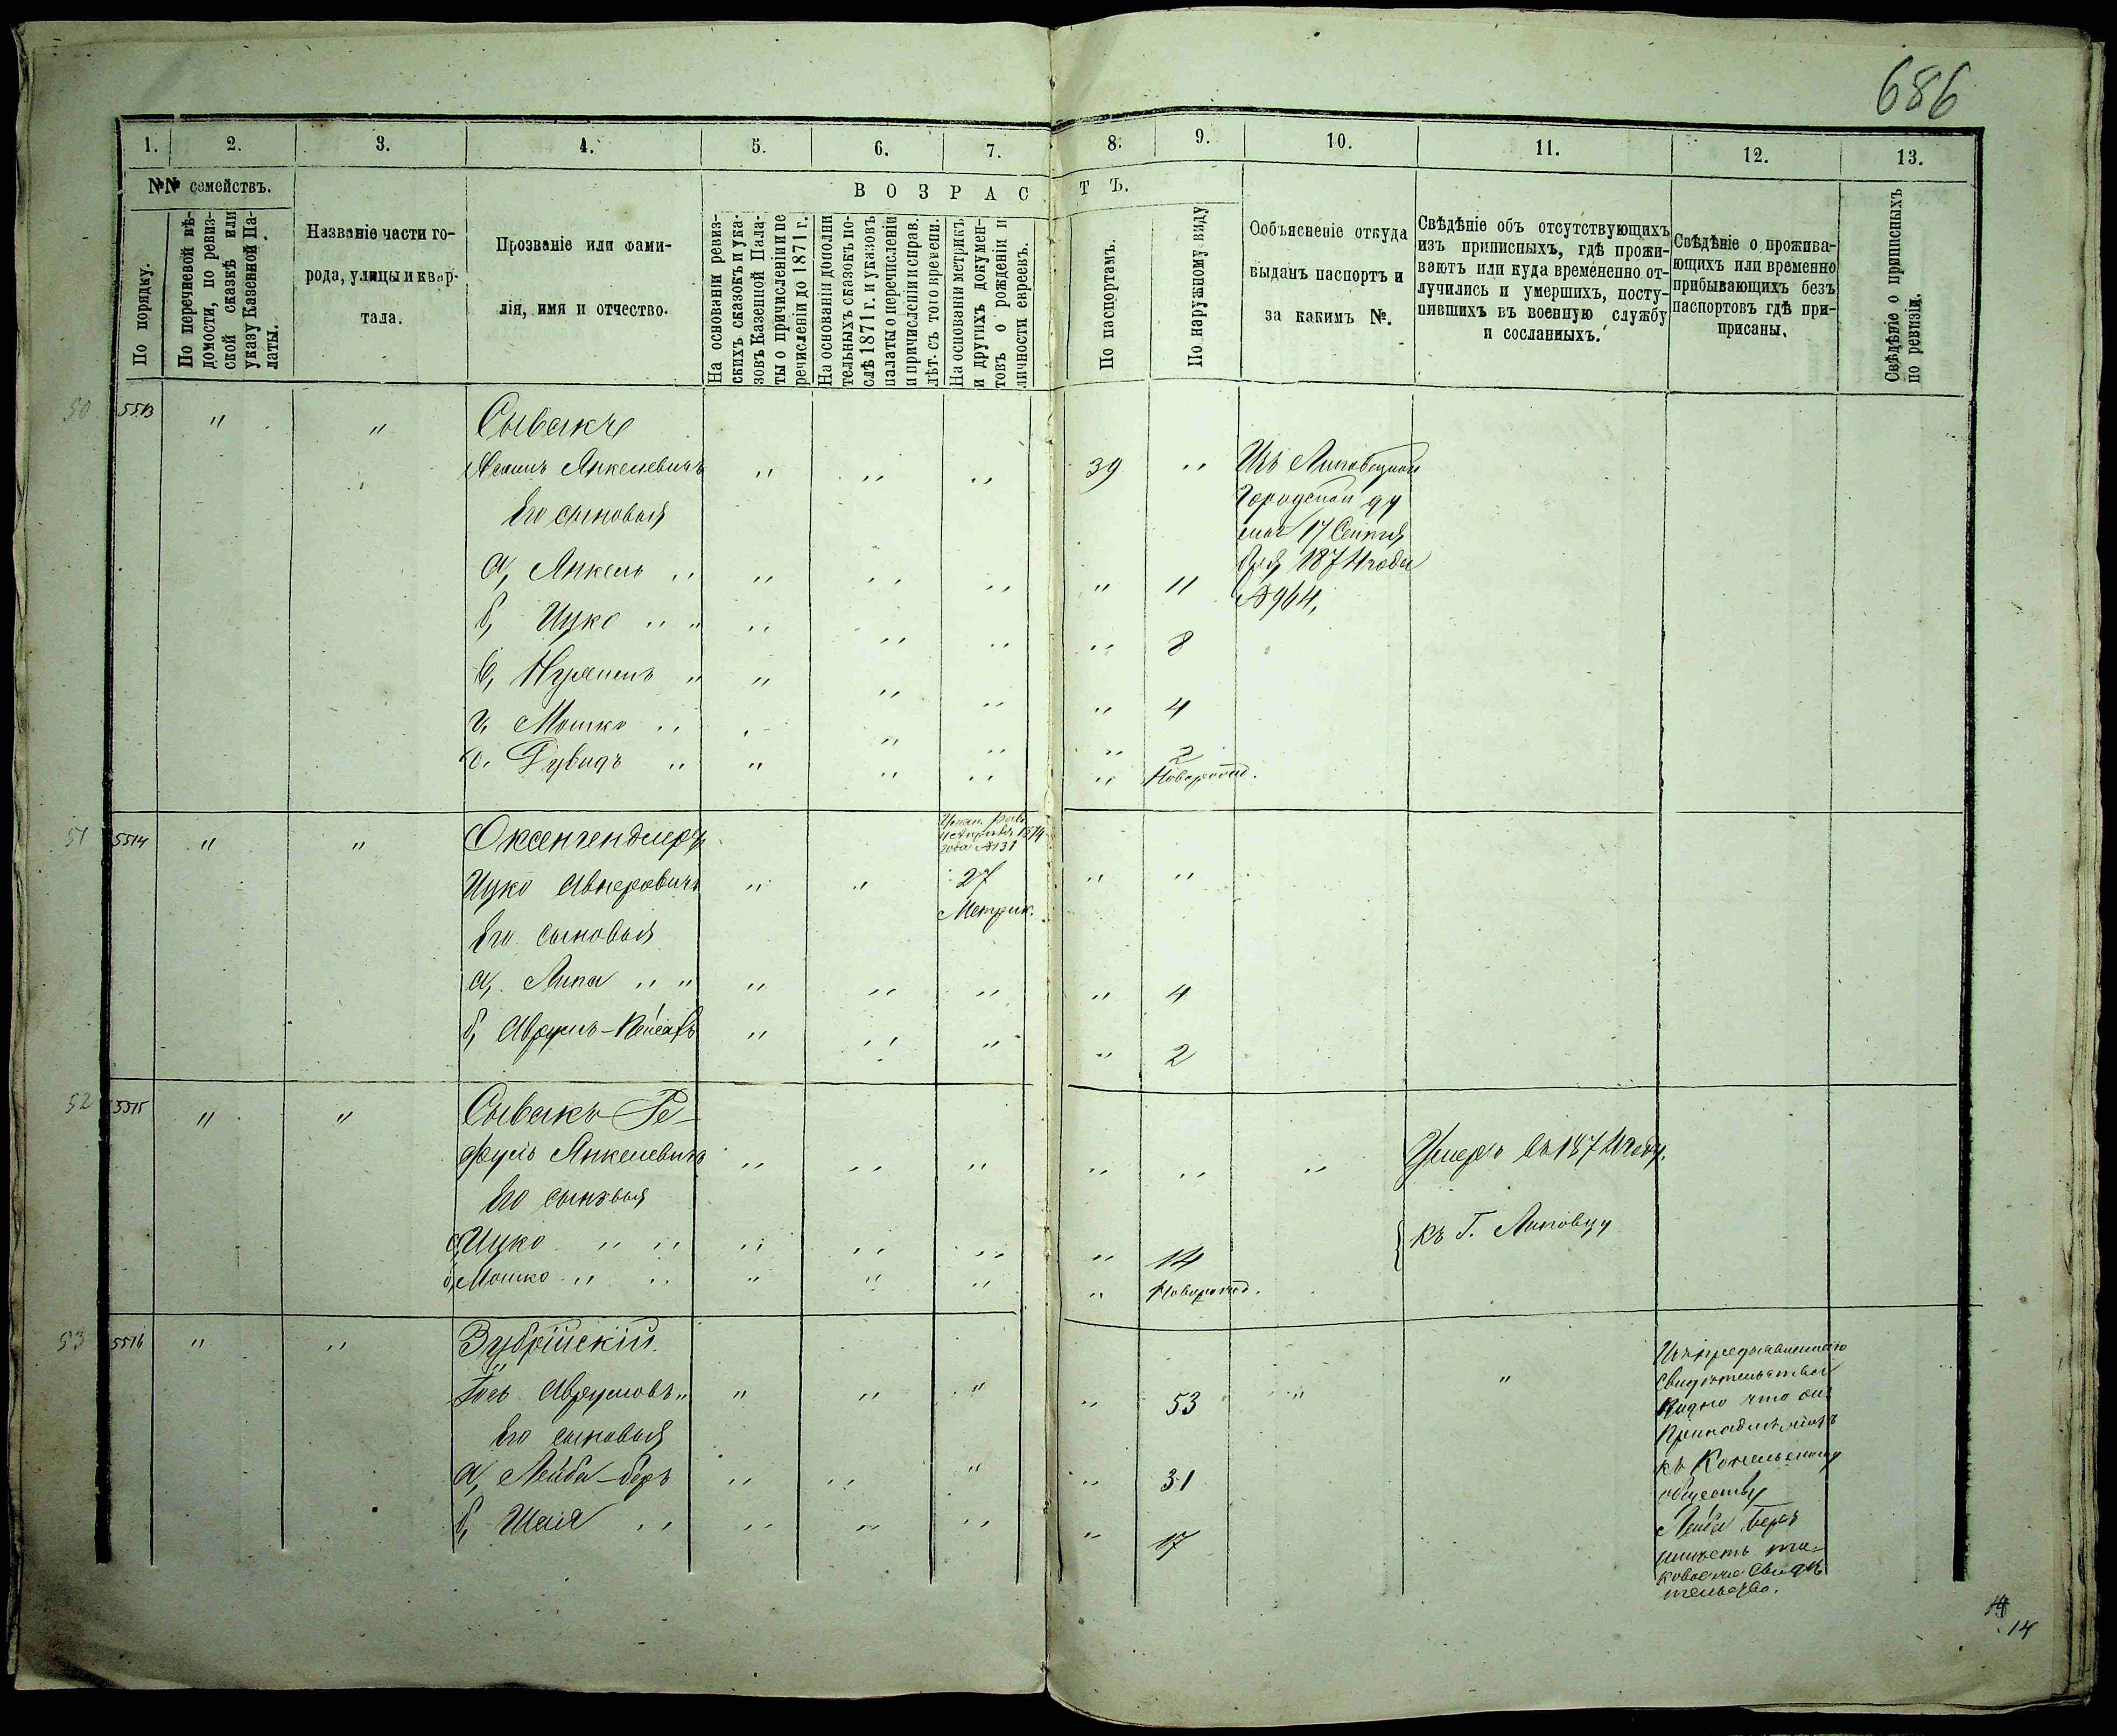 686
1. 2. 3. 4. 5. 6. 7. 8. 9. 10. 11. 12. 13.
№№ семействъ.
В О З Р А С Т Ъ.
По порядку.
По перечневой вѣ-
домости, по ревиз-
ской сказкѣ или
указу Казенной Па-
латы.
Названіе части го-
рода, улицы и квар-
тала.
Прозваніе или фами-
лія, имя и отчество.
На основаніи ревиз-
скихъ сказокъ и ука-
зовъ Казенной Пала-
ты о причисленіи и пе
речисленіи до 1871 г.
На основаніи дополни
тельныхъ сказокъ по-
слѣ 1871 г. и указовъ
палаты о перечисленіи
и причисленіи и справ.
лѣт. съ того времени.
На основаніи метрикъ
и другихъ докумен-
товъ о рожденіи и
личности евреевъ.
По паспортамъ.
По наружному виду
Ообъясненіе откуда
выданъ паспортъ и
за какимъ №.
Свѣдѣніе объ отсутствующихъ
изъ приписныхъ, гдѣ прожи-
ваютъ или куда времененно от-
лучились и умершихъ, посту-
пившихъ въ военную службу
и сосланныхъ.
Свѣдѣніе о прожива-
ющихъ или временно
прибывающихъ безъ
паспортовъ гдѣ при-
приписаны.
Свѣдѣніе о приписныхъ
по ревизіи.
50 5513 " " Сывакъ
Янкелевичъ " " " 39 " Изъ Липовецкой
Его сыновья Городской ду
мы 17 Сентя
а, Янкель " " " " " 11 бря 1874 года
№ 964,
б, Ицко " " " " " " 8
в, " " " " " 4
г, Мошко " " " " " 2
д, Дувидъ " " " " " Новорожд.
51 5514 " " Оксенгендлеръ
1874
года № 131
Ицко Авнеровичъ " " 27 " "
Метрик.
Его сыновья
а, Липа " " " " " " 4
б, Аврумъ-Пейсахъ " " " " 2
52 5515 " " Сывакъ Ре-
фуль Янкелевичъ " " " " " " Умеръ въ 1874 году.
Его сыновья
а, Ицко " " " " " " 14 къ Г. Липовцу
б, Мошко " " " " " " Новорожд.
53 5516 " " Зубрійскій
Іось Аврумовъ " " " " " 53 " "
Его сыновья
а, Лейба-беръ " " " " 31
б, Шая " " " " " 17
Изъ предъявленнаго
свидѣтельства
видно что онъ
принадлежитъ
къ Конельскому
обществу
Лейба Беръ
имѣетъ та-
ковое же свидѣ
тельство.
14